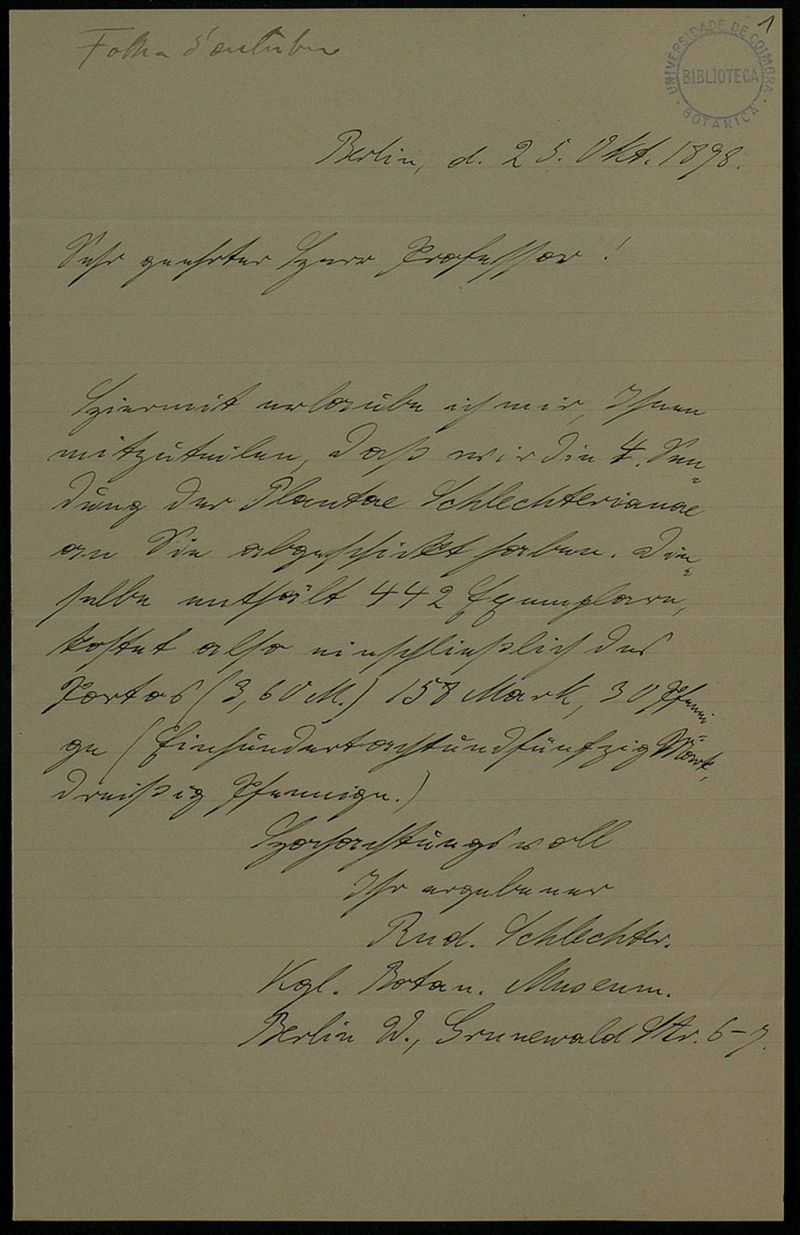 1
UNIVERSIDADE DE COIMBRA
BIBLIOTECA
BOTANICA
Berlin, d. 25. Okt. 1898.
Sehr geehrter Herr Professor!
Hiermit erlaube ich mir, Ihnen
mitzuteilen, daß wir die 4. Sen=
dung der Plantae Schlechterianae
an Sie abgeschickt haben. Die=
selbe enthält 442 Exemplare,
kostet also einschließlich des
Portos (3,60 M.) 158 Mark, 30 Pfenni=
ge (Einhundertachtundfünfzig Mark,
dreißig Pfennige.)
Hochachtungsvoll
Ihr ergebener
Rud. Schlechter.
Kgl. Botan. Museum.
Berlin W., Grunewald Str. 6-7.